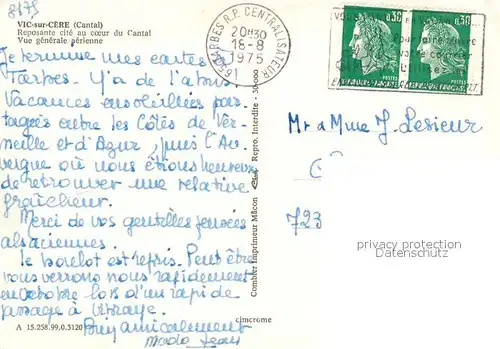 8/75
VIC-sur-CÈRE (Cantal)
Reposante cité au cœur du Cantal
Vue générale aérienne
Je termine mes cartes à
Tarbes. Y'a de l'abus
Vacances ensoleillées par-
tagées entre les Côtes de Ver-
meille et d'Azur, puis l'Au-
vergne où nous étions heureux
de retrouver une relative
fraîcheur.
Merci de vos gentilles pensées
alsaciennes.
Le boulot est repris. Peut être
vous verrons nous rapidement
en octobre lors d'un rapide
passage à Vibraye.
Bien amicalement
Mado Jean
A 15.258.99.0.3120
cimcrome
Combier Imprimeur Mâcon
Repro. Interdite - 30.000
65 TARBES R.P. CENTRALISATEUR
20H30
18-8
1975
0,30
0,30
Mr et Mme J. Lesieur
C
723
privacy protection
watermark